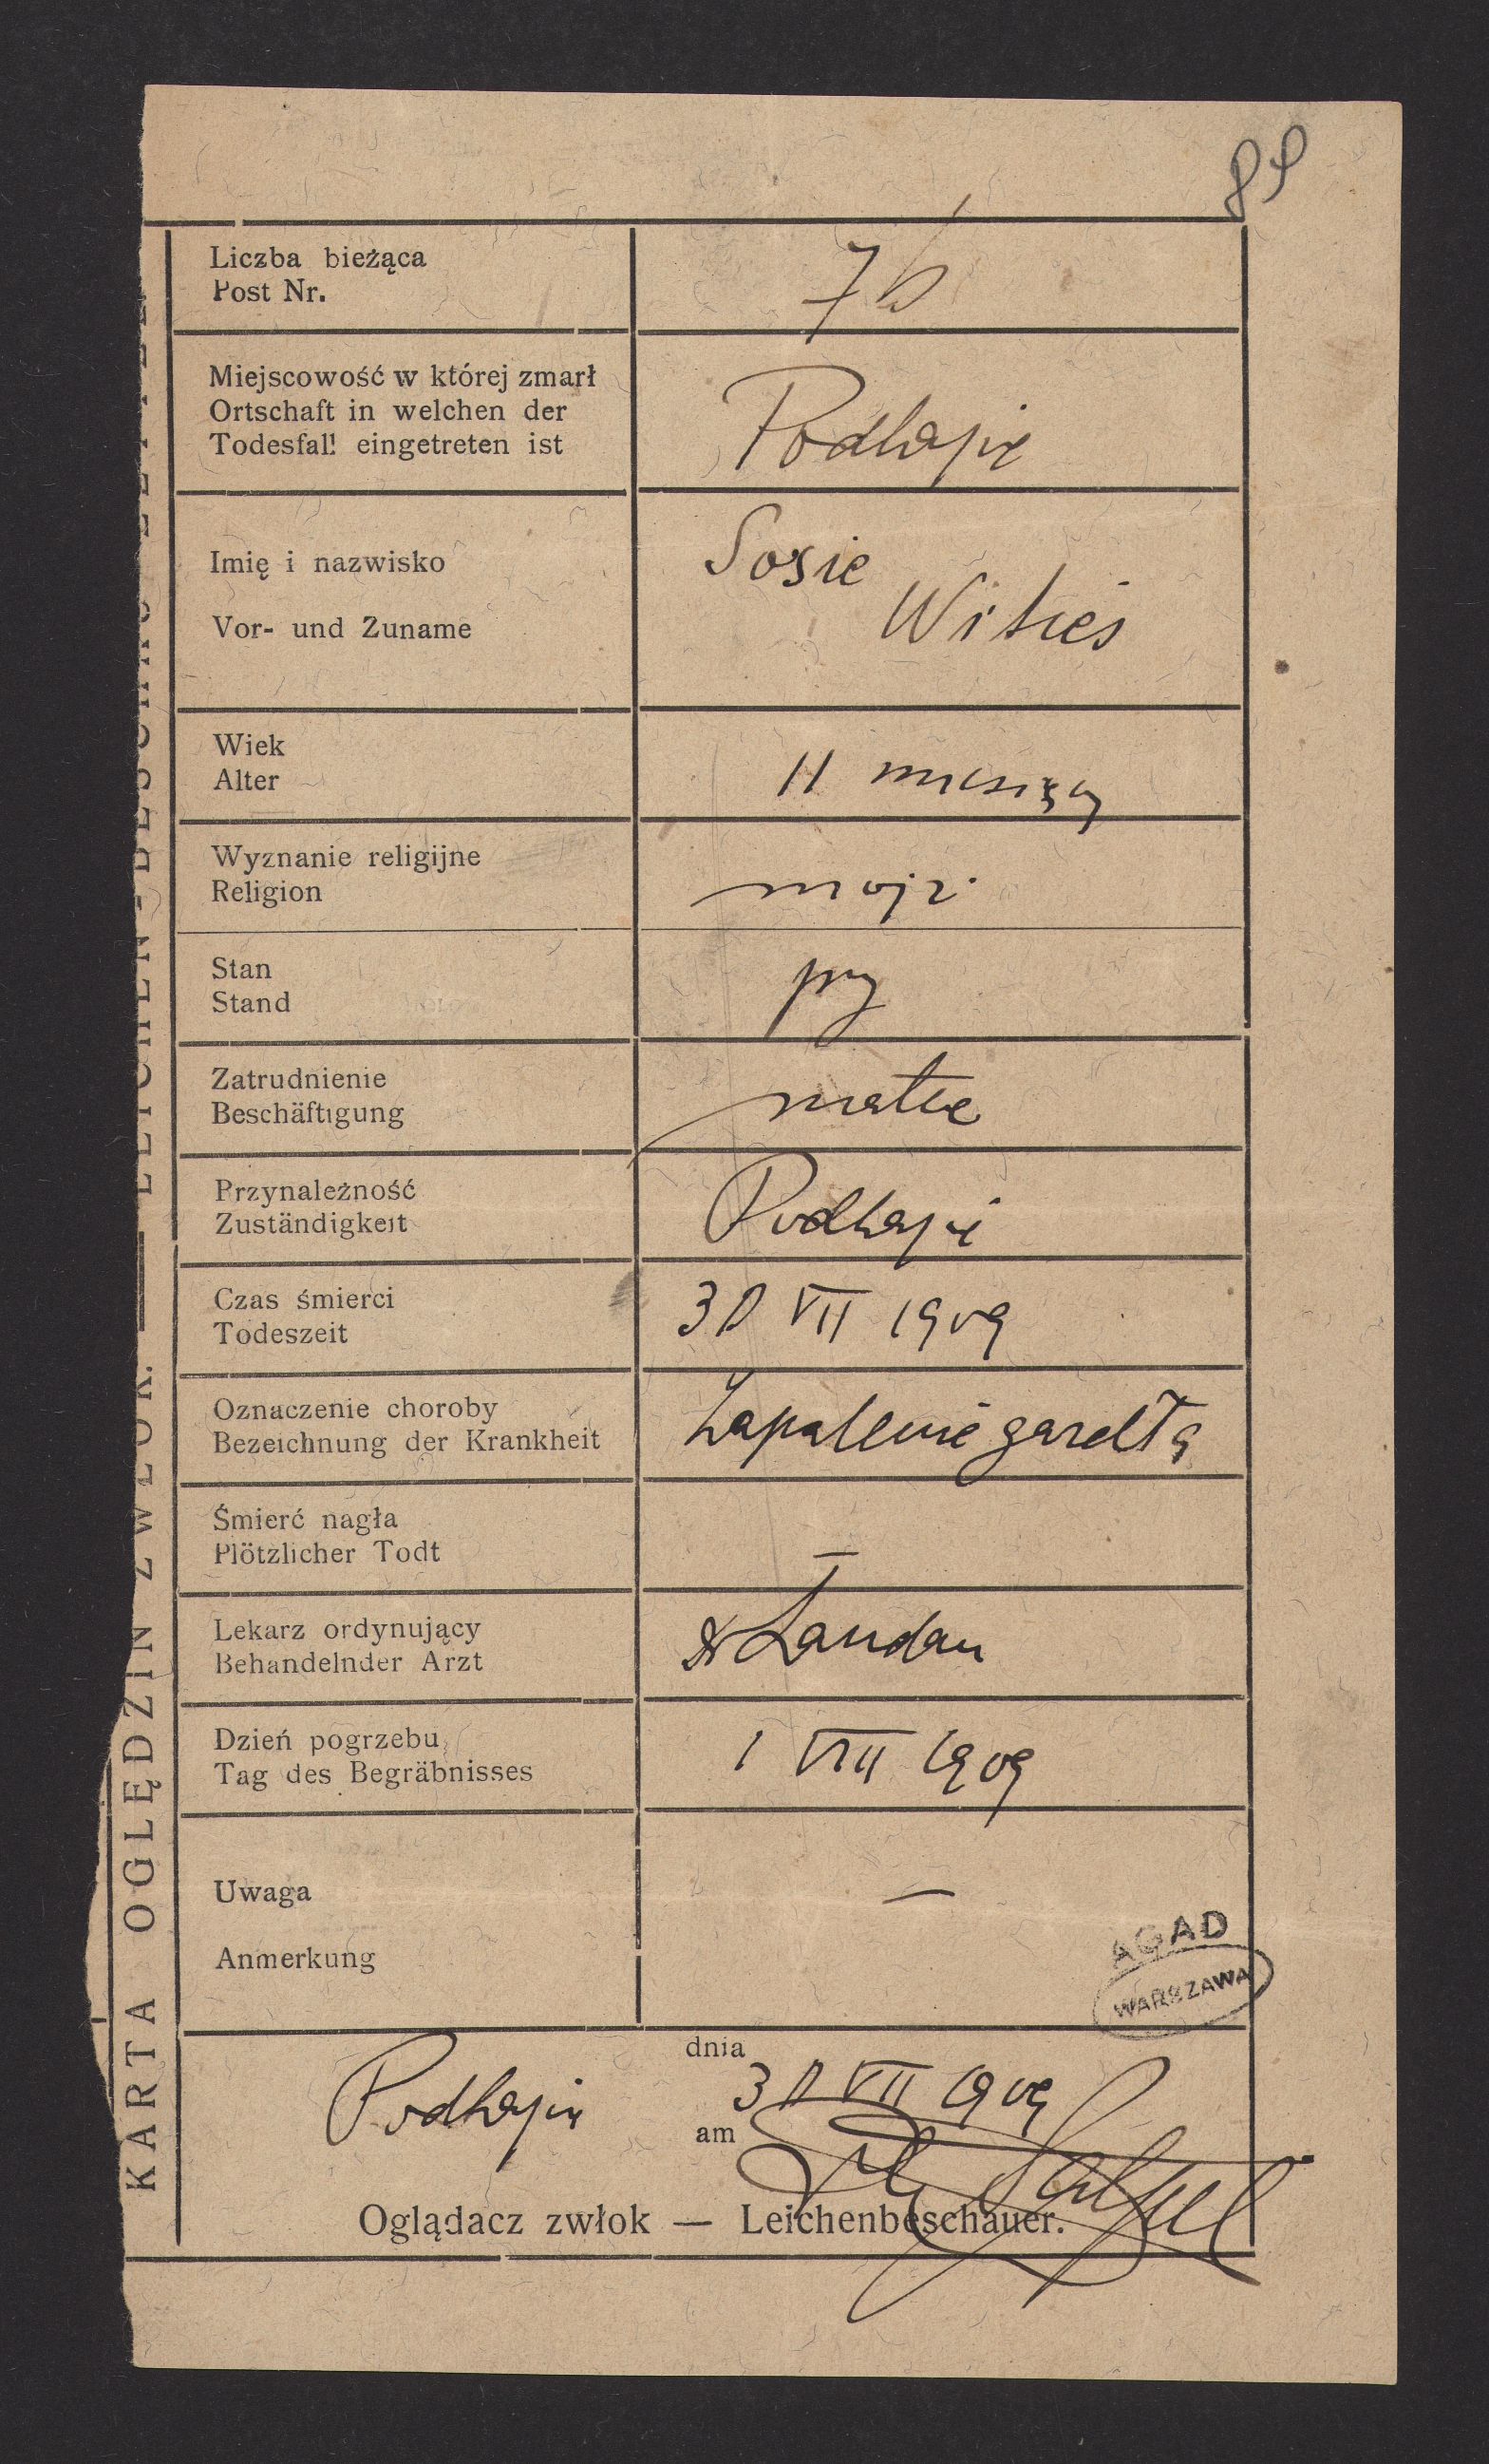 89
Liczba bieżąca
Post Nr.
76
Miejscowość w której zmarł
Ortschaft in welchen der
Todesfall eingetreten ist
Podhajce
Imię i nazwisko
Vor- und Zuname
Sosie
Witkes
Wiek
Alter
11 miesięcy
Wyznanie religijne
Religion
mojż.
Stan
Stand
Zatrudnienie
Beschäftigung
matka
Przynależność
Zuständigkeit
Podhajce
Czas śmierci
Todeszeit
30 VII 1909
Oznaczenie choroby
Bezeichnung der Krankheit
Zapalenie gardła
Śmierć nagła
Plötzlicher Todt
—
Lekarz ordynujący
Behandelnder Arzt
Dr Landau
Dzień pogrzebu
Tag des Begräbnisses
1 VIII 1909
Uwaga
Anmerkung
—
AGAD
WARSZAWA
Podhajce
dnia
am
30 VII 1909
Oglądacz zwłok — Leichenbeschauer.
KARTA OGLĘDZIN ZWŁOK. — LEICHEN-BESCHAU-ZETTEL.